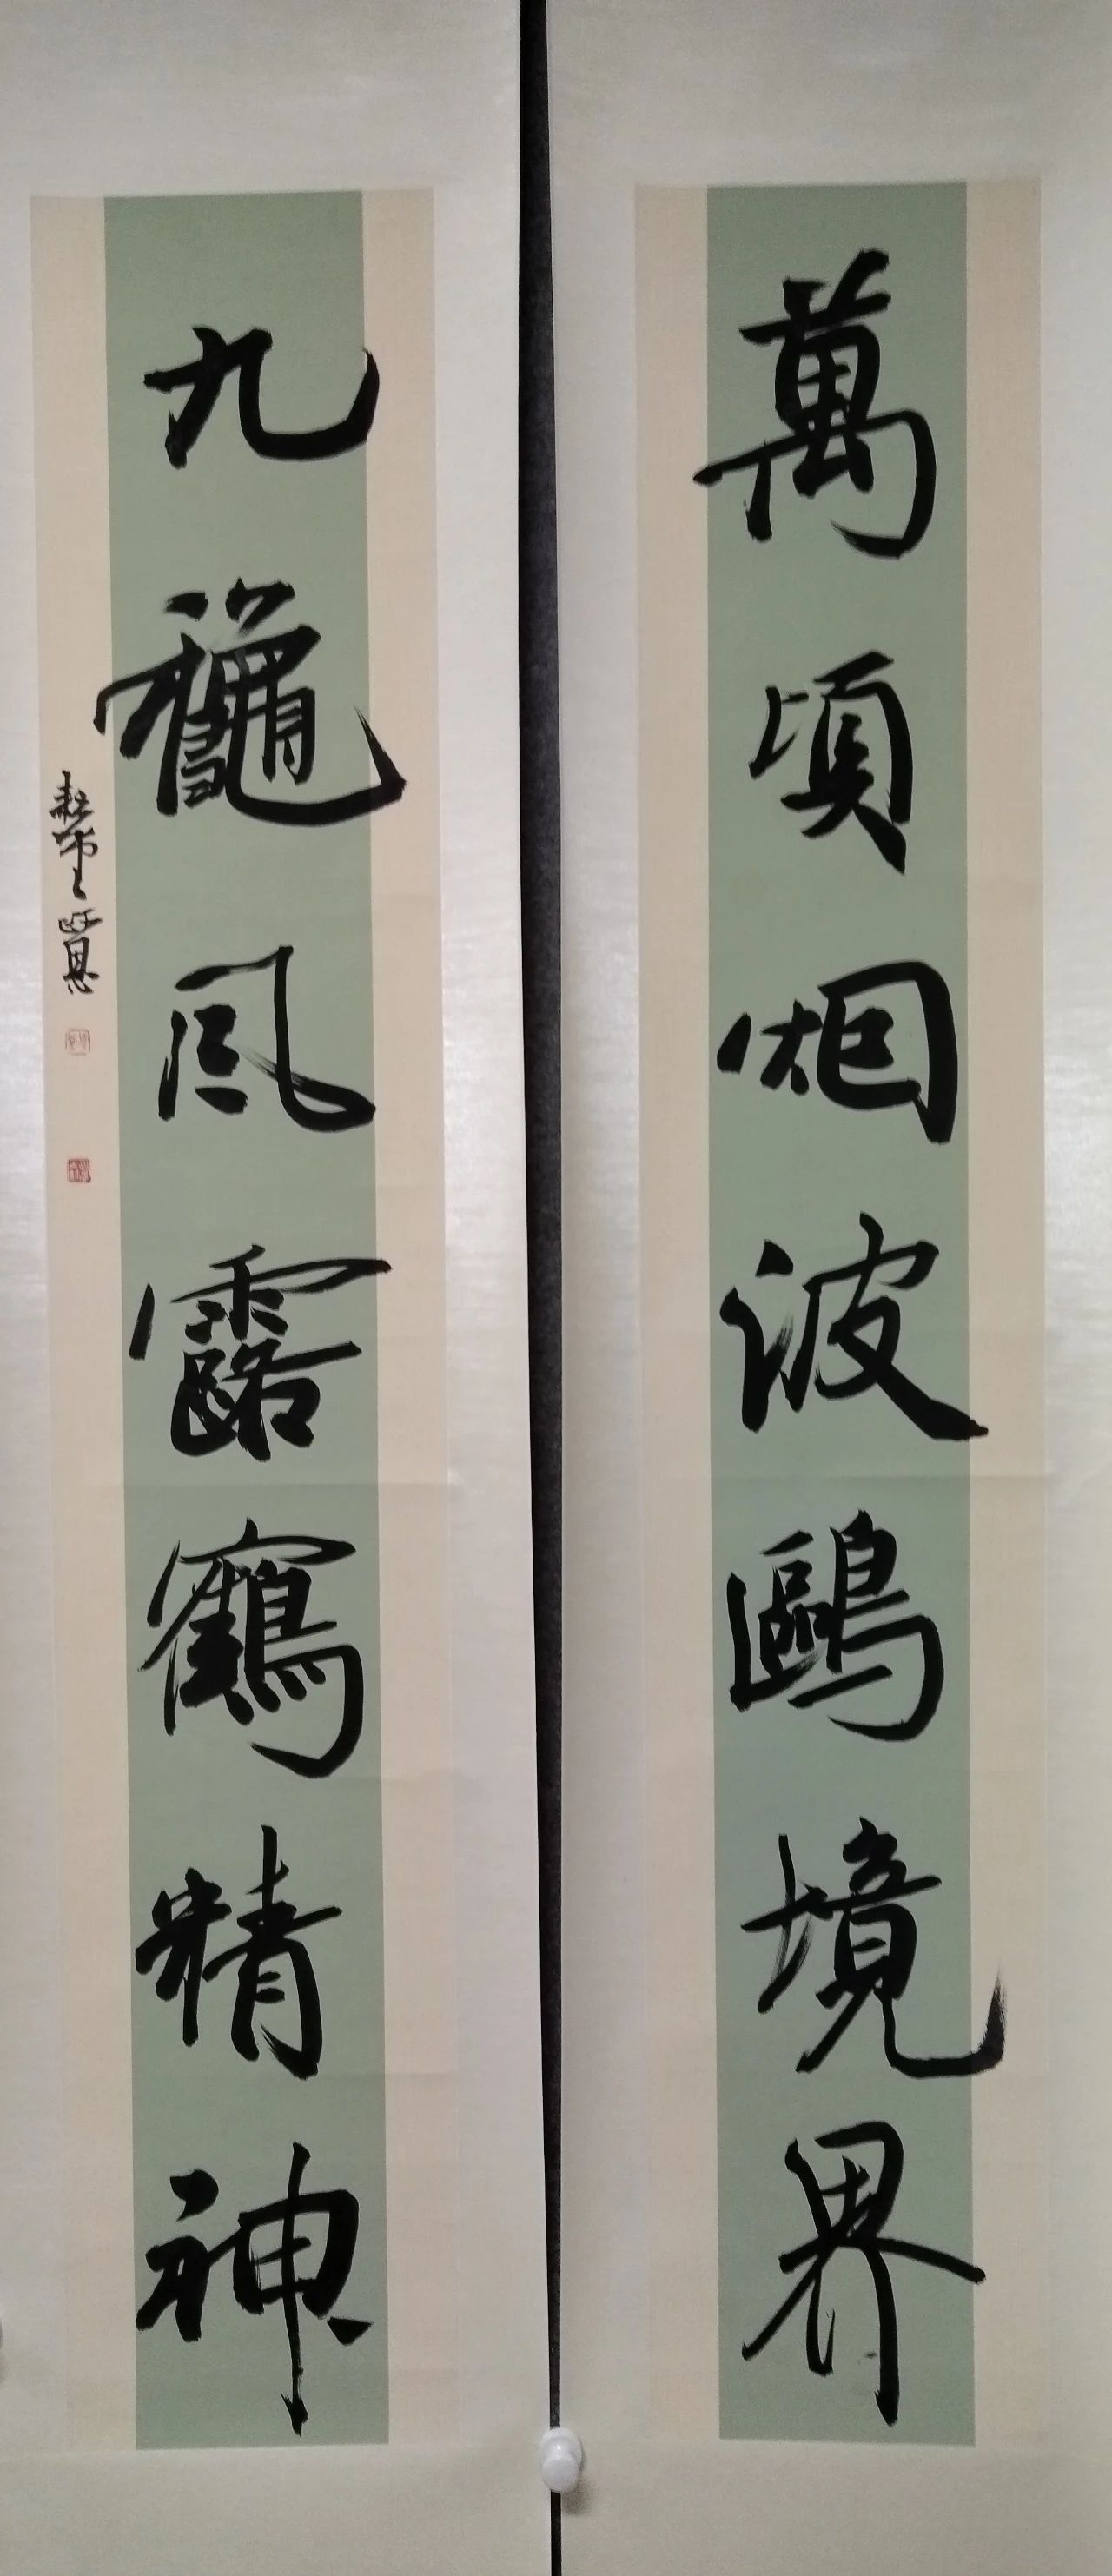 萬頃烟波鷗境界
九龝風露鶴精神